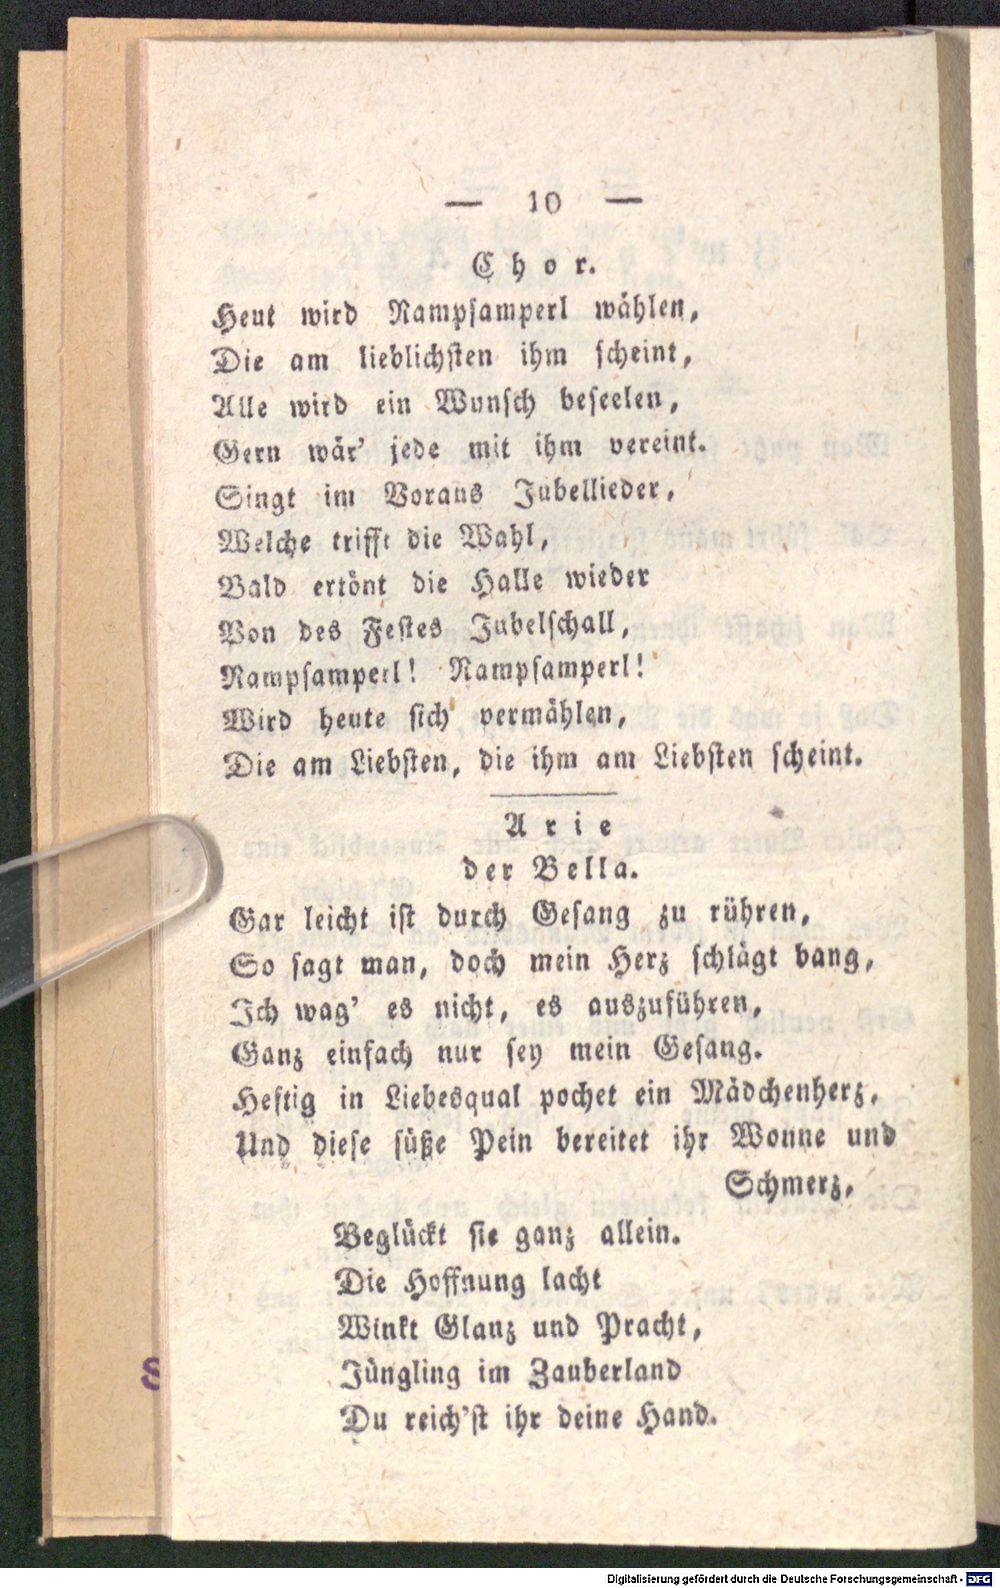 — 10 —
Chor.
Heut wird Rampsamperl wählen,
Die am lieblichsten ihm scheint,
Alle wird ein Wunsch beseelen,
Gern wär' jede mit ihm vereint.
Singt im Voraus Jubellieder,
Welche trifft die Wahl,
Bald ertönt die Halle wieder
Von des Festes Jubelschall,
Rampsamperl! Rampsamperl!
Wird heute sich vermählen,
Die am Liebsten, die ihm am Liebsten scheint.
Arie
der Bella.
Gar leicht ist durch Gesang zu rühren,
So sagt man, doch mein Herz schlägt bang,
Ich wag' es nicht, es auszuführen,
Ganz einfach nur sey mein Gesang.
Heftig in Liebesqual pochet ein Mädchenherz,
Und diese süße Pein bereitet ihr Wonne und
Schmerz,
Beglückt sie ganz allein.
Die Hoffnung lacht
Winkt Glanz und Pracht,
Jüngling im Zauberland
Du reich'st ihr deine Hand.
Digitalisierung gefördert durch die Deutsche Forschungsgemeinschaft - DFG